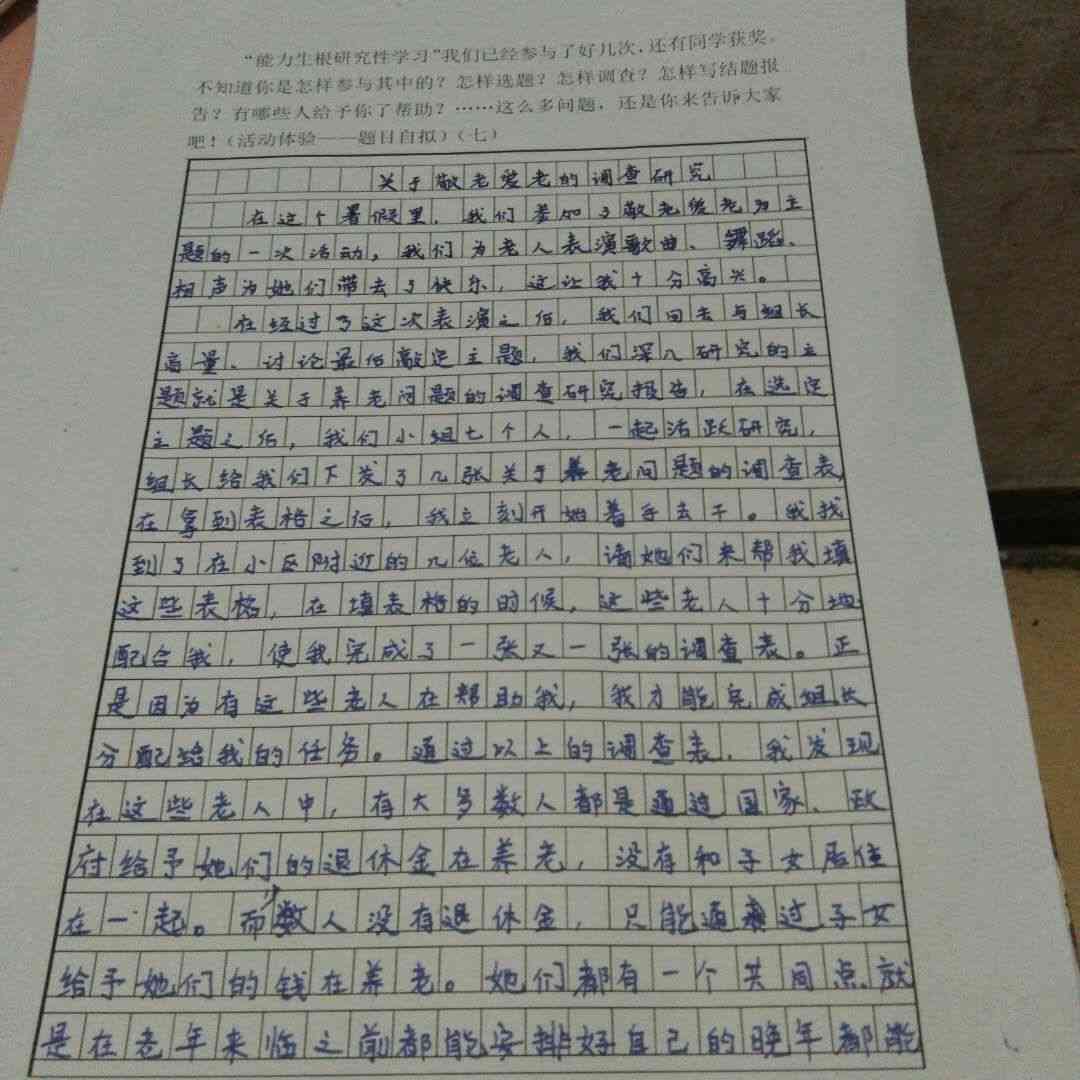 “能力生根研究性学习”我们已经参与了好几次，还有同学获奖。
不知道你是怎样参与其中的？怎样选题？怎样调查？怎样写结题报
告？有哪些人给予你了帮助？……这么多问题，还是你来告诉大家
吧！（活动体验——题目自拟）（七）
关于敬老爱老的调查研究
在这个暑假里，我们参加了敬老爱老为主
题的一次活动，我们为老人表演歌曲、舞蹈、
相声为她们带去了快乐，这让我十分高兴。
在经过了这次表演之后，我们回去与组长
商量、讨论最后敲定主题，我们深入研究的主
题就是关于养老问题的调查研究报告，在选定
主题之后，我们小组七个人，一起活跃研究，
组长给我们下发了几张关于养老问题的调查表，
在拿到表格之后，我立刻开始着手去干。我找
到了在小区附近的几位老人，请她们来帮我填
这些表格，在填表格的时候，这些老人十分地
配合我，使我完成了一张又一张的调查表。正
是因为有这些老人在帮助我，我才能完成组长
分配给我的任务。通过以上的调查表，我发现
在这些老人中，有大多数人都是通过国家、政
府给予她们的退休金在养老，没有和子女居住
在一起。而少数人没有退休金，只能通过子女
给予她们的钱在养老。她们都有一个共同点就
是在老年来临之前都能安排好自己的晚年都能